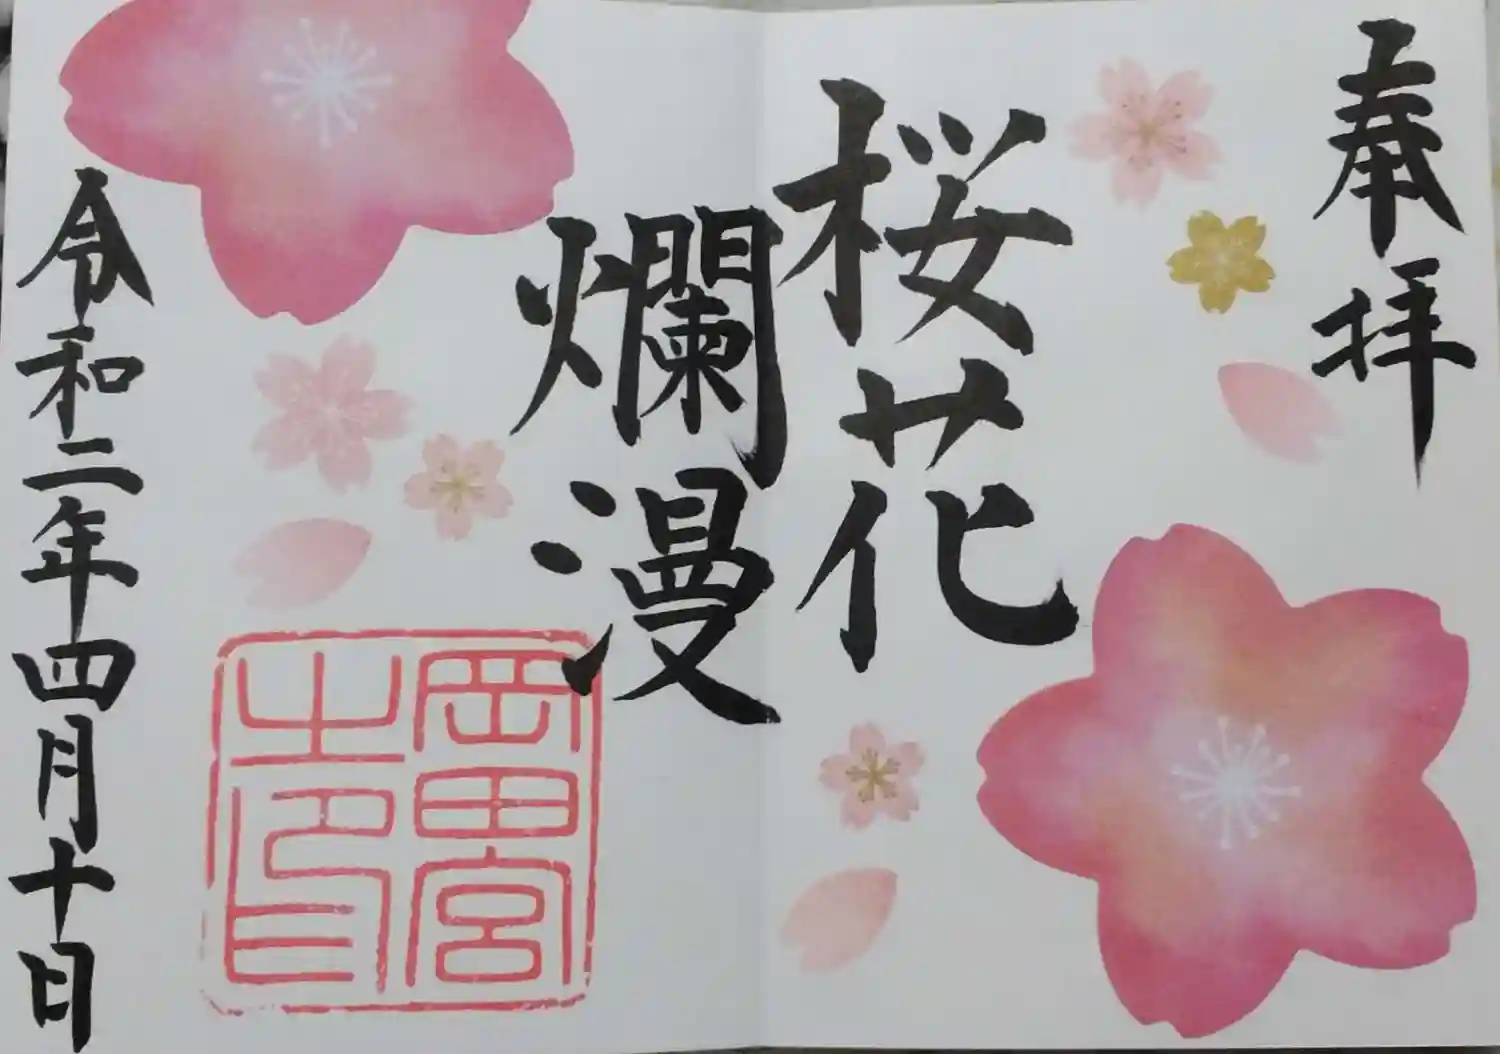 奉拝
桜花
爛漫
岡田宮
之印
令和二年四月十日